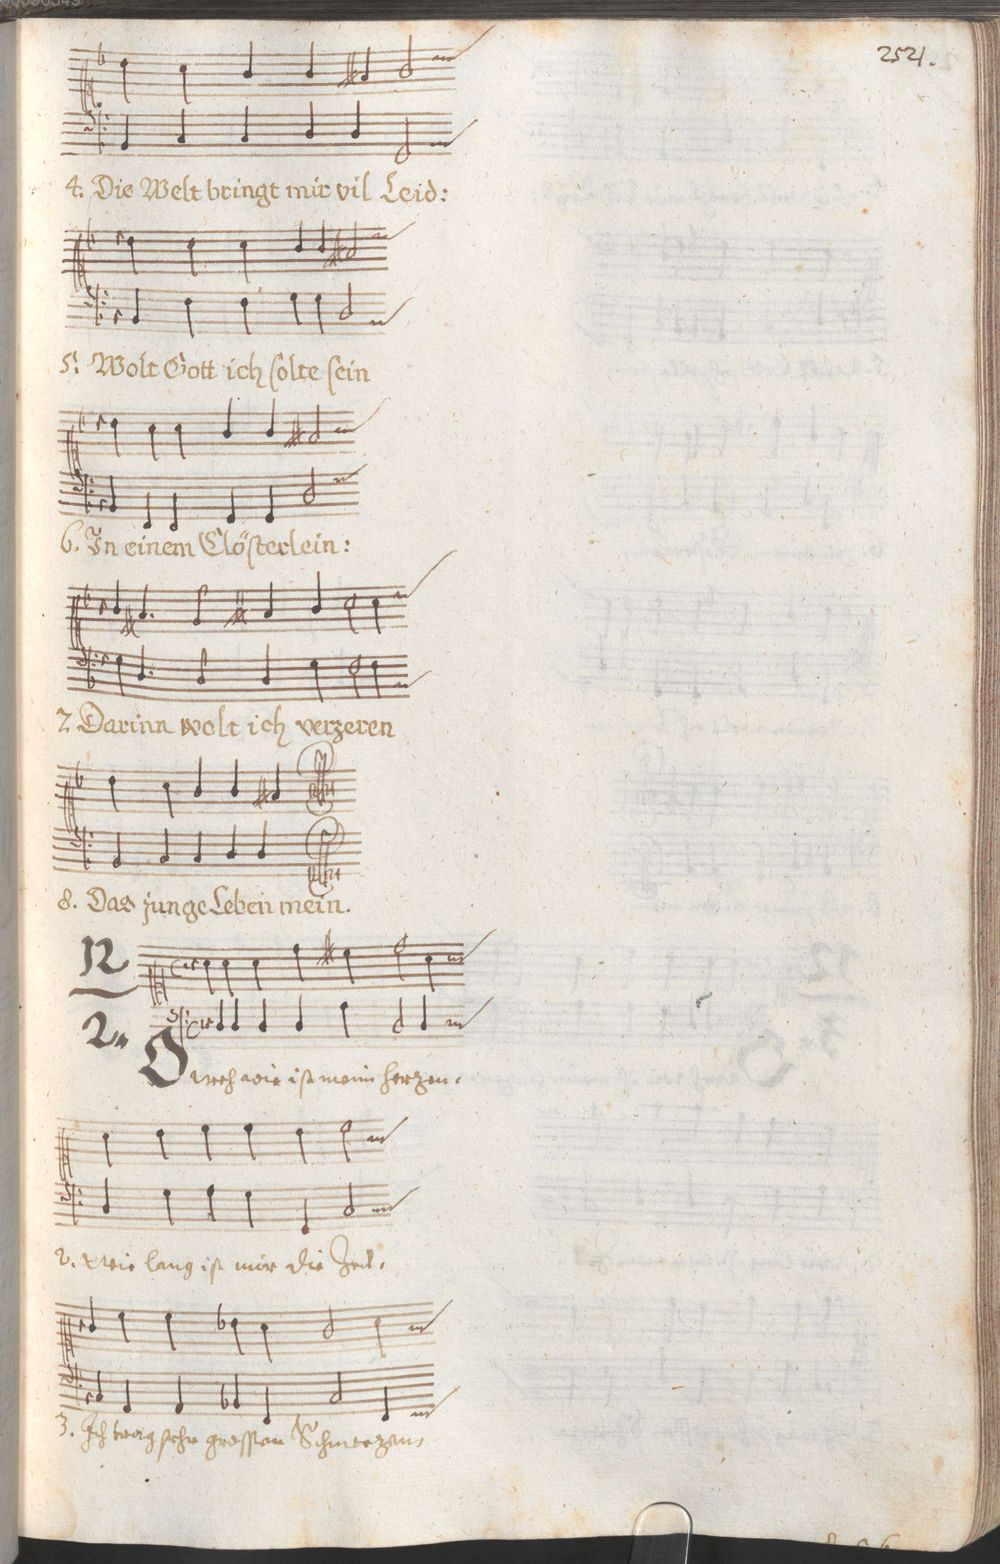 252.
4. Die Welt bringt mir vil Leid:
5. Wolt Gott ich solte sein
6. In einem Clösterlein:
7 Darinn wolt ich verzeren
8. Das junge Leben mein.
12
2.
O weh wie ist meim herzen.
2. Wie lang ist mir die Zeit.
3. Ich trag sehr grossen Schmerzen,